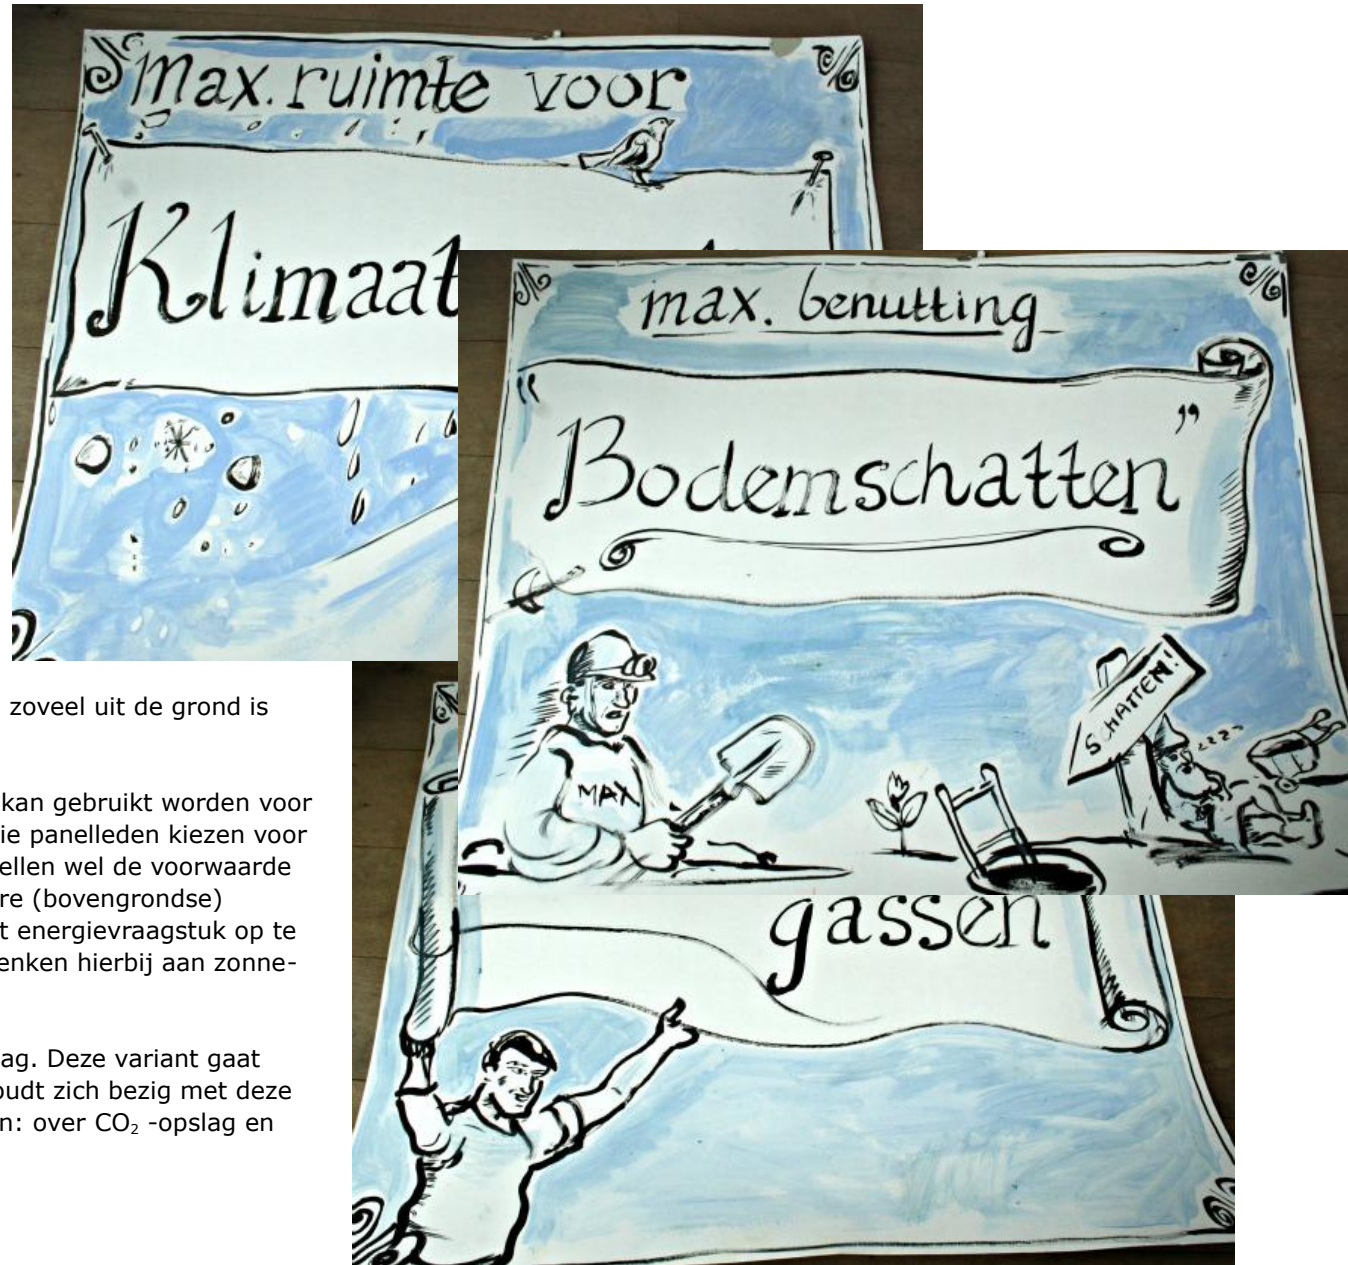 max. ruimte voor
Klimaat
max. benutting
" Bodemschatten "
SCHATTEN!
zzzz
MAX
gassen
zoveel uit de grond is
kan gebruikt worden voor
ie panelleden kiezen voor
ellen wel de voorwaarde
re (bovengrondse)
t energievraagstuk op te
enken hierbij aan zonne-
ag. Deze variant gaat
oudt zich bezig met deze
n: over CO₂ -opslag en